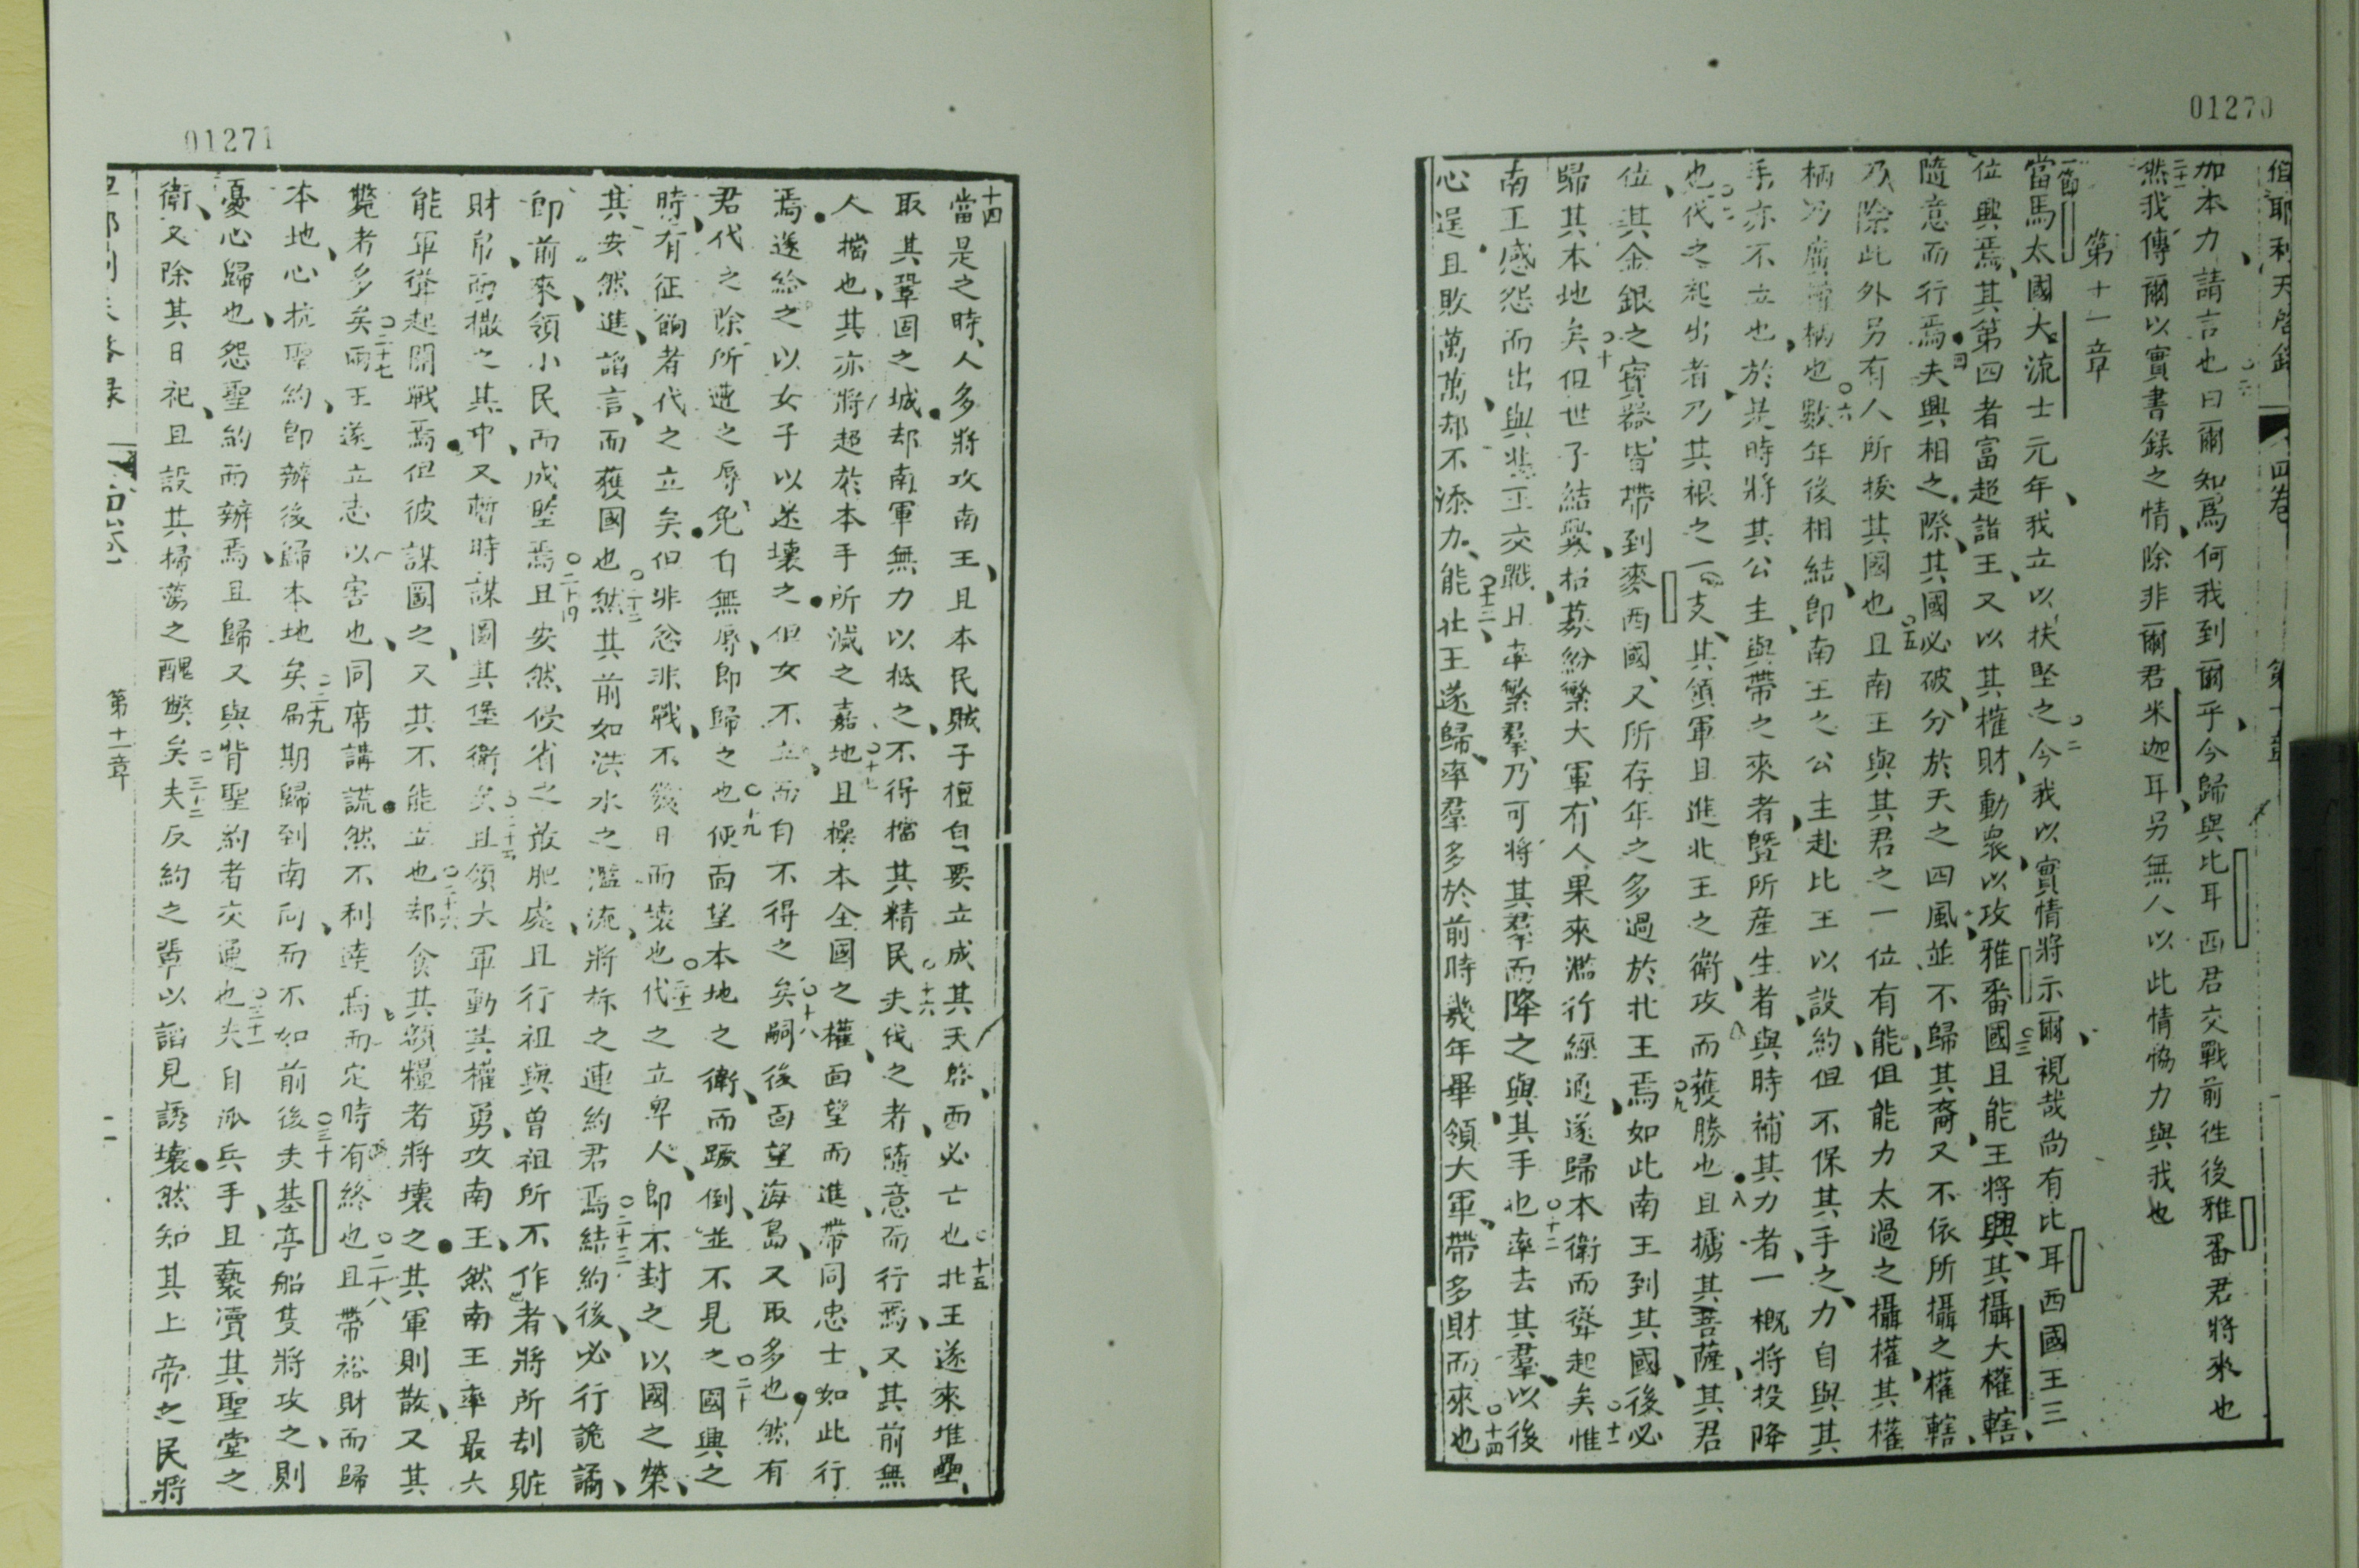 01270
伯耶利天啓錄 四卷 第十章
加本力請言也曰爾知爲何我到爾乎今歸與比耳西君交戰前徃後雅番君將來也
二十一 然我傳爾以實書錄之情除非爾君米迦耳另無人以此情恊力與我也
第十一章
一節 當馬太國大流士元年我立以扶堅之○二今我以實情將示爾視哉尚有比耳西國王三
位興焉其第四者富超諸王又以其權財動衆以攻雅番國○三且能王將興其攝大權轄
隨意而行焉○四夫興相之際其國必破分於天之四風並不歸其裔又不依所攝之權轄
乃除此外另有人所接其國也○五且南王與其君之一位有能但能力太過之攝權其權
柄乃廣權柄也○六數年後相結即南王之公主赴比王以設約但不保其手之力自與其
手亦不立也於其時將其公主與帶之來者曁所産生者與時補其力者一概將投降
也○七代之起出者乃其根之一支其領軍且進北王之衛攻而獲勝也○八且擄其菩薩其君
位其金銀之寶器皆帶到麥西國又所存年之多過於北王焉○九如此南王到其國後必
歸其本地矣○十但世子結釁招募紛繁大軍有人果來濫行經過遂歸本衛而聳起矣○十一惟
南王感怨而出與北王交戰且率繁羣乃可將其羣而降之與其手也○十二率去其羣以後
心逞且敗萬萬却不添力○十三能北王遂歸率羣多於前時幾年畢領大軍帶多財而來也○十四
01271
十四 當是之時人多將攻南王且本民賊子擅自要立成其天啓而必亡也○十五北王遂來堆壘
取其鞏固之城却南軍無力以抵之不得擋其精民○十六夫伐之者隨意而行焉又其前無
人擋也其亦將超於本手所滅之嘉地○十七且操本全國之權面望而進帶同忠士如此行
焉遂給之以女子以送壞之但女不立而自不得之矣○十八嗣後面望海島又取多也然有
君代之除所遭之辱免自無辱即歸之也○十九便面望本地之衛而蹶倒並不見之○二十國興之
時有征餉者代之立矣但非忿非戰不幾日而壞也○二十一代之立卑人即不封之以國之榮
其安然進謟言而獲國也○二十二然其前如洪水之濫流將拆之連約君焉○二十三結約後必行詭譎
即前來領小民而成堅焉○二十四且安然候省之敢肥處且行祖與曾祖所不作者將所刦賍
財帛而撒之其中又暫時謀圖其堡衛矣○二十五且領大軍動其權勇攻南王然南王率最大
能軍聳起開戰焉但彼謀圖之又其不能立也○二十六却食其額糧者將壞之其軍則散又其
斃者多矣○二十七兩王遂立志以害也同席講謊然不利達焉而定時有終也○二十八且帶裕財而歸
本地心抗聖約即辦後歸本地矣○二十九屆期歸到南向而不如前後○三十夫基亭船隻將攻之則
憂心歸也怨聖約而辦焉且歸又與背聖約者交通也○三十一夫自派兵手且褻瀆其聖堂之
衛又除其日祀且設其掃蕩之醜弊矣○三十二夫反約之輩以謟見誘壞然知其上帝之民將
第十一章